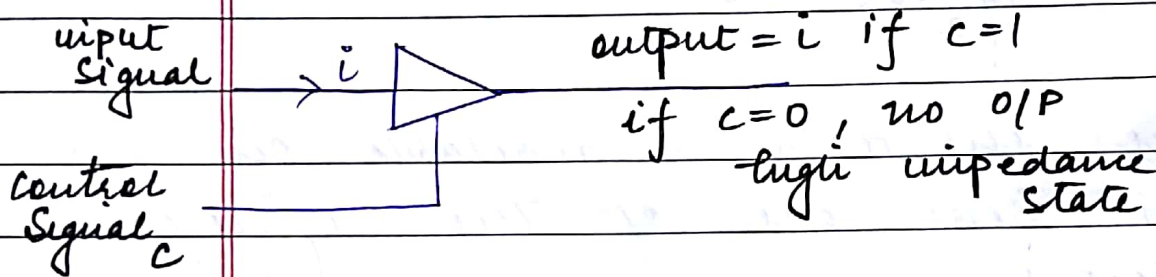 input
signal
i
output = i if c=1
if c=0, no O/P
high impedance
state
control
signal
c